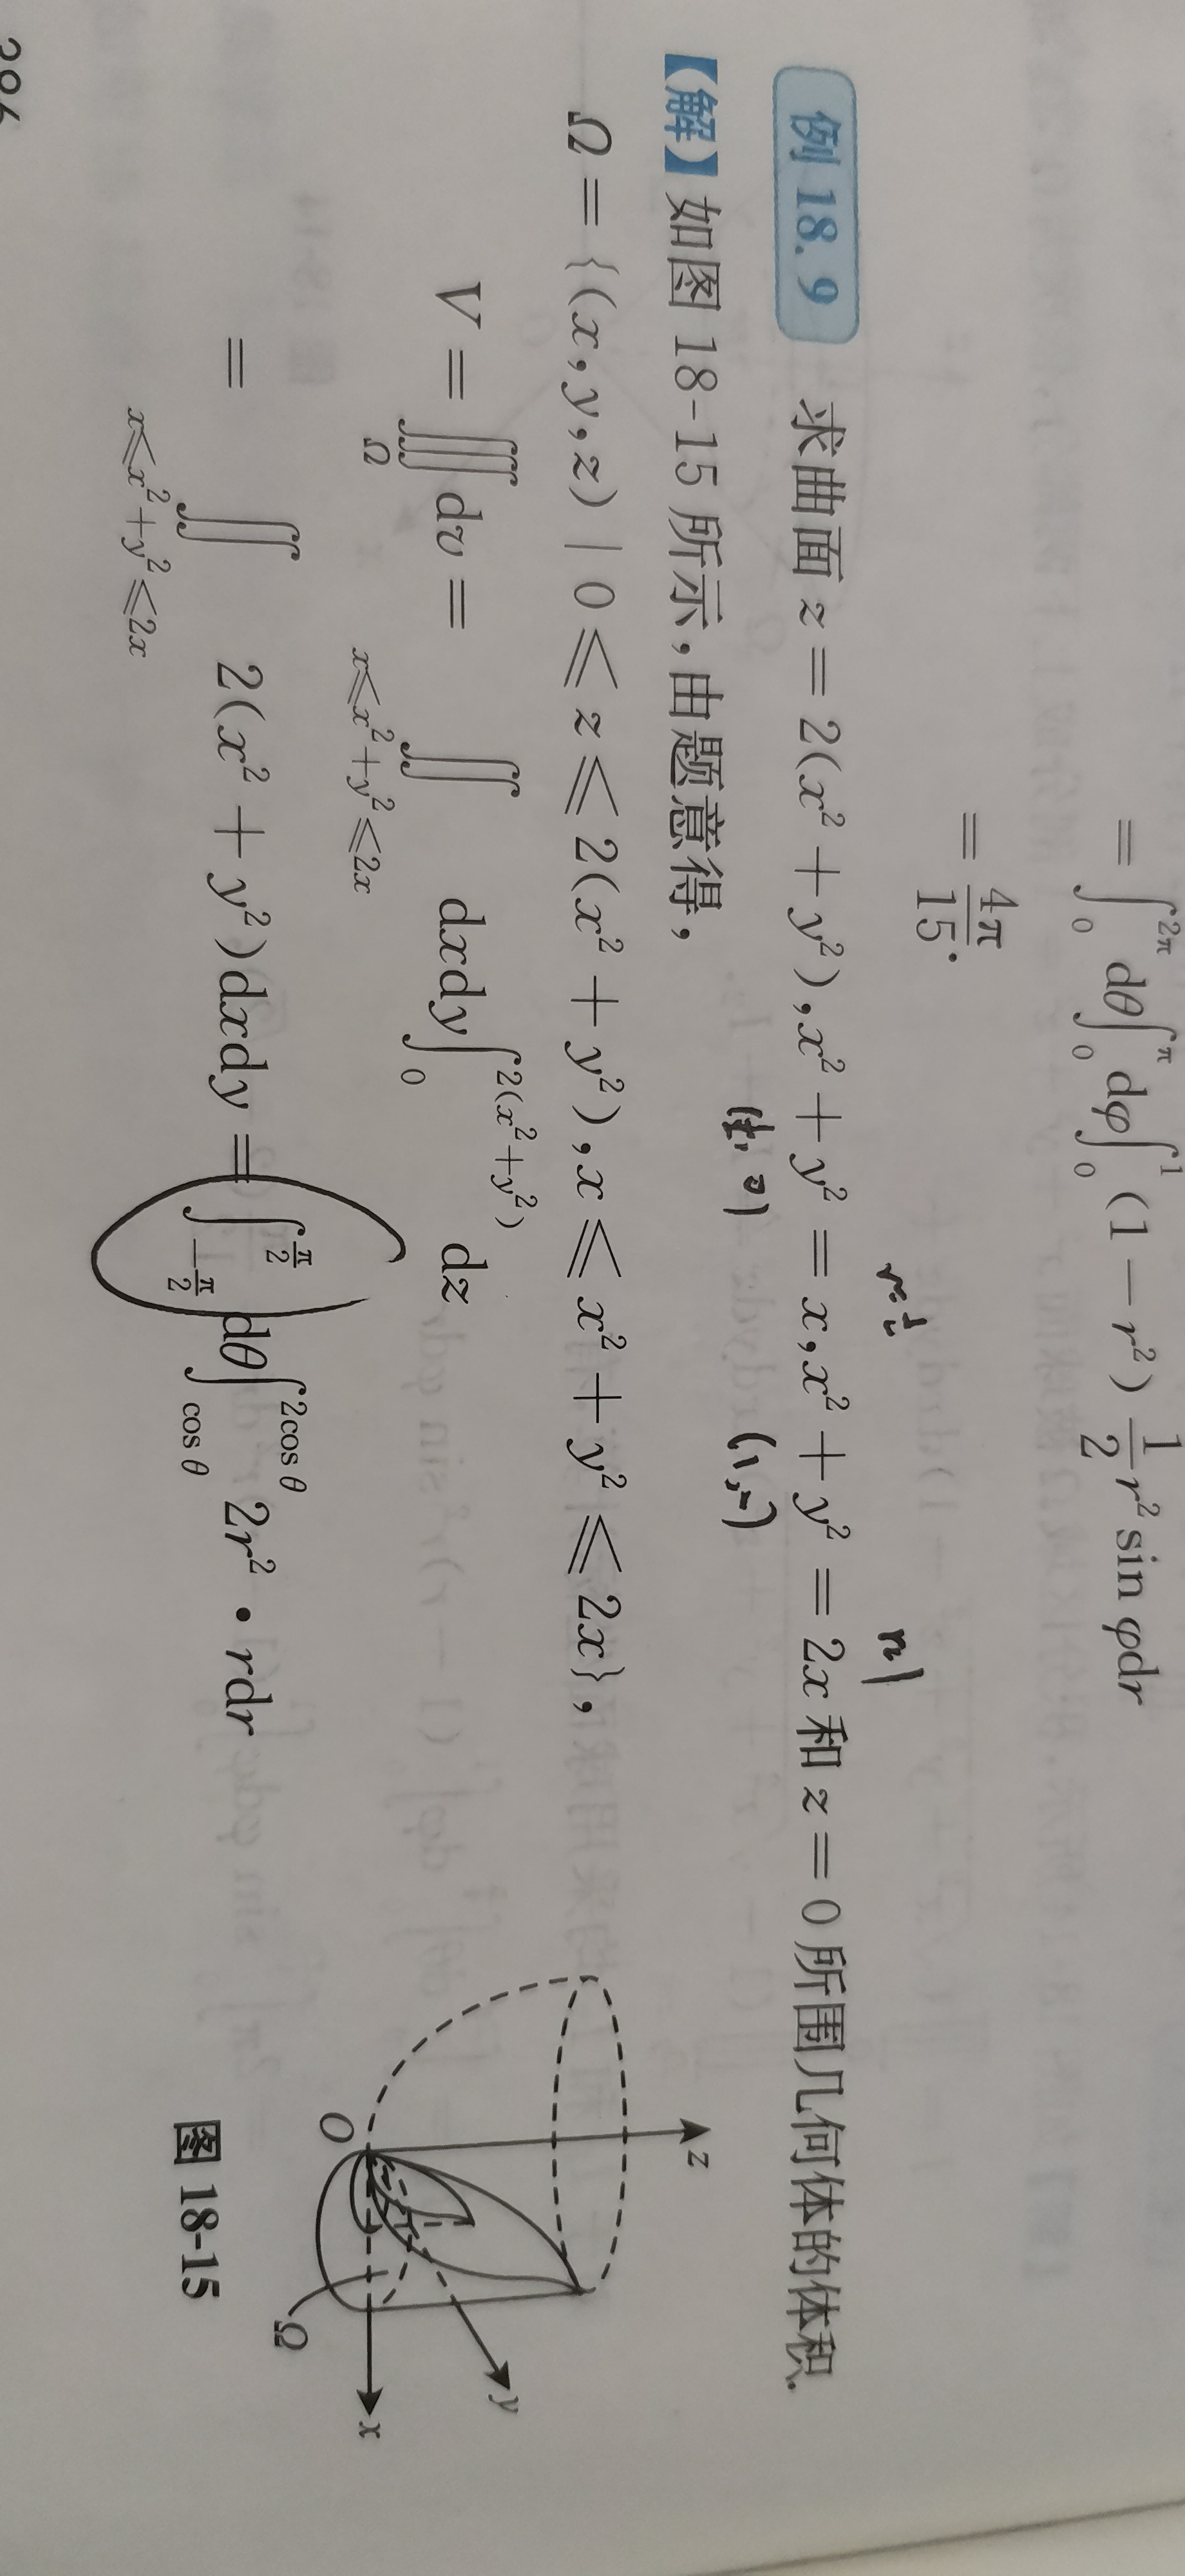 = ∫₀^{2π} dθ ∫₀^{π} dφ ∫₀^{1} (1 − r²) 1/2 r² sin φdr
= 4π/15.
r=1/2
r=1
例 18.9 求曲面 z = 2(x² + y²), x² + y² = x, x² + y² = 2x 和 z = 0 所围几何体的体积.
(1/2, 0)
【解】如图 18-15 所示,由题意得,
Ω = {(x, y, z) | 0 ⩽ z ⩽ 2(x² + y²), x ⩽ x² + y² ⩽ 2x},
V = ∭_Ω dv = ∬_{x⩽x²+y²⩽2x} dxdy ∫₀^{2(x²+y²)} dz
= ∬_{x⩽x²+y²⩽2x} 2(x² + y²)dxdy = ∫_{−π/2}^{π/2} dθ ∫_{cos θ}^{2cos θ} 2r² · rdr
z
y
x
O
Ω
图 18-15